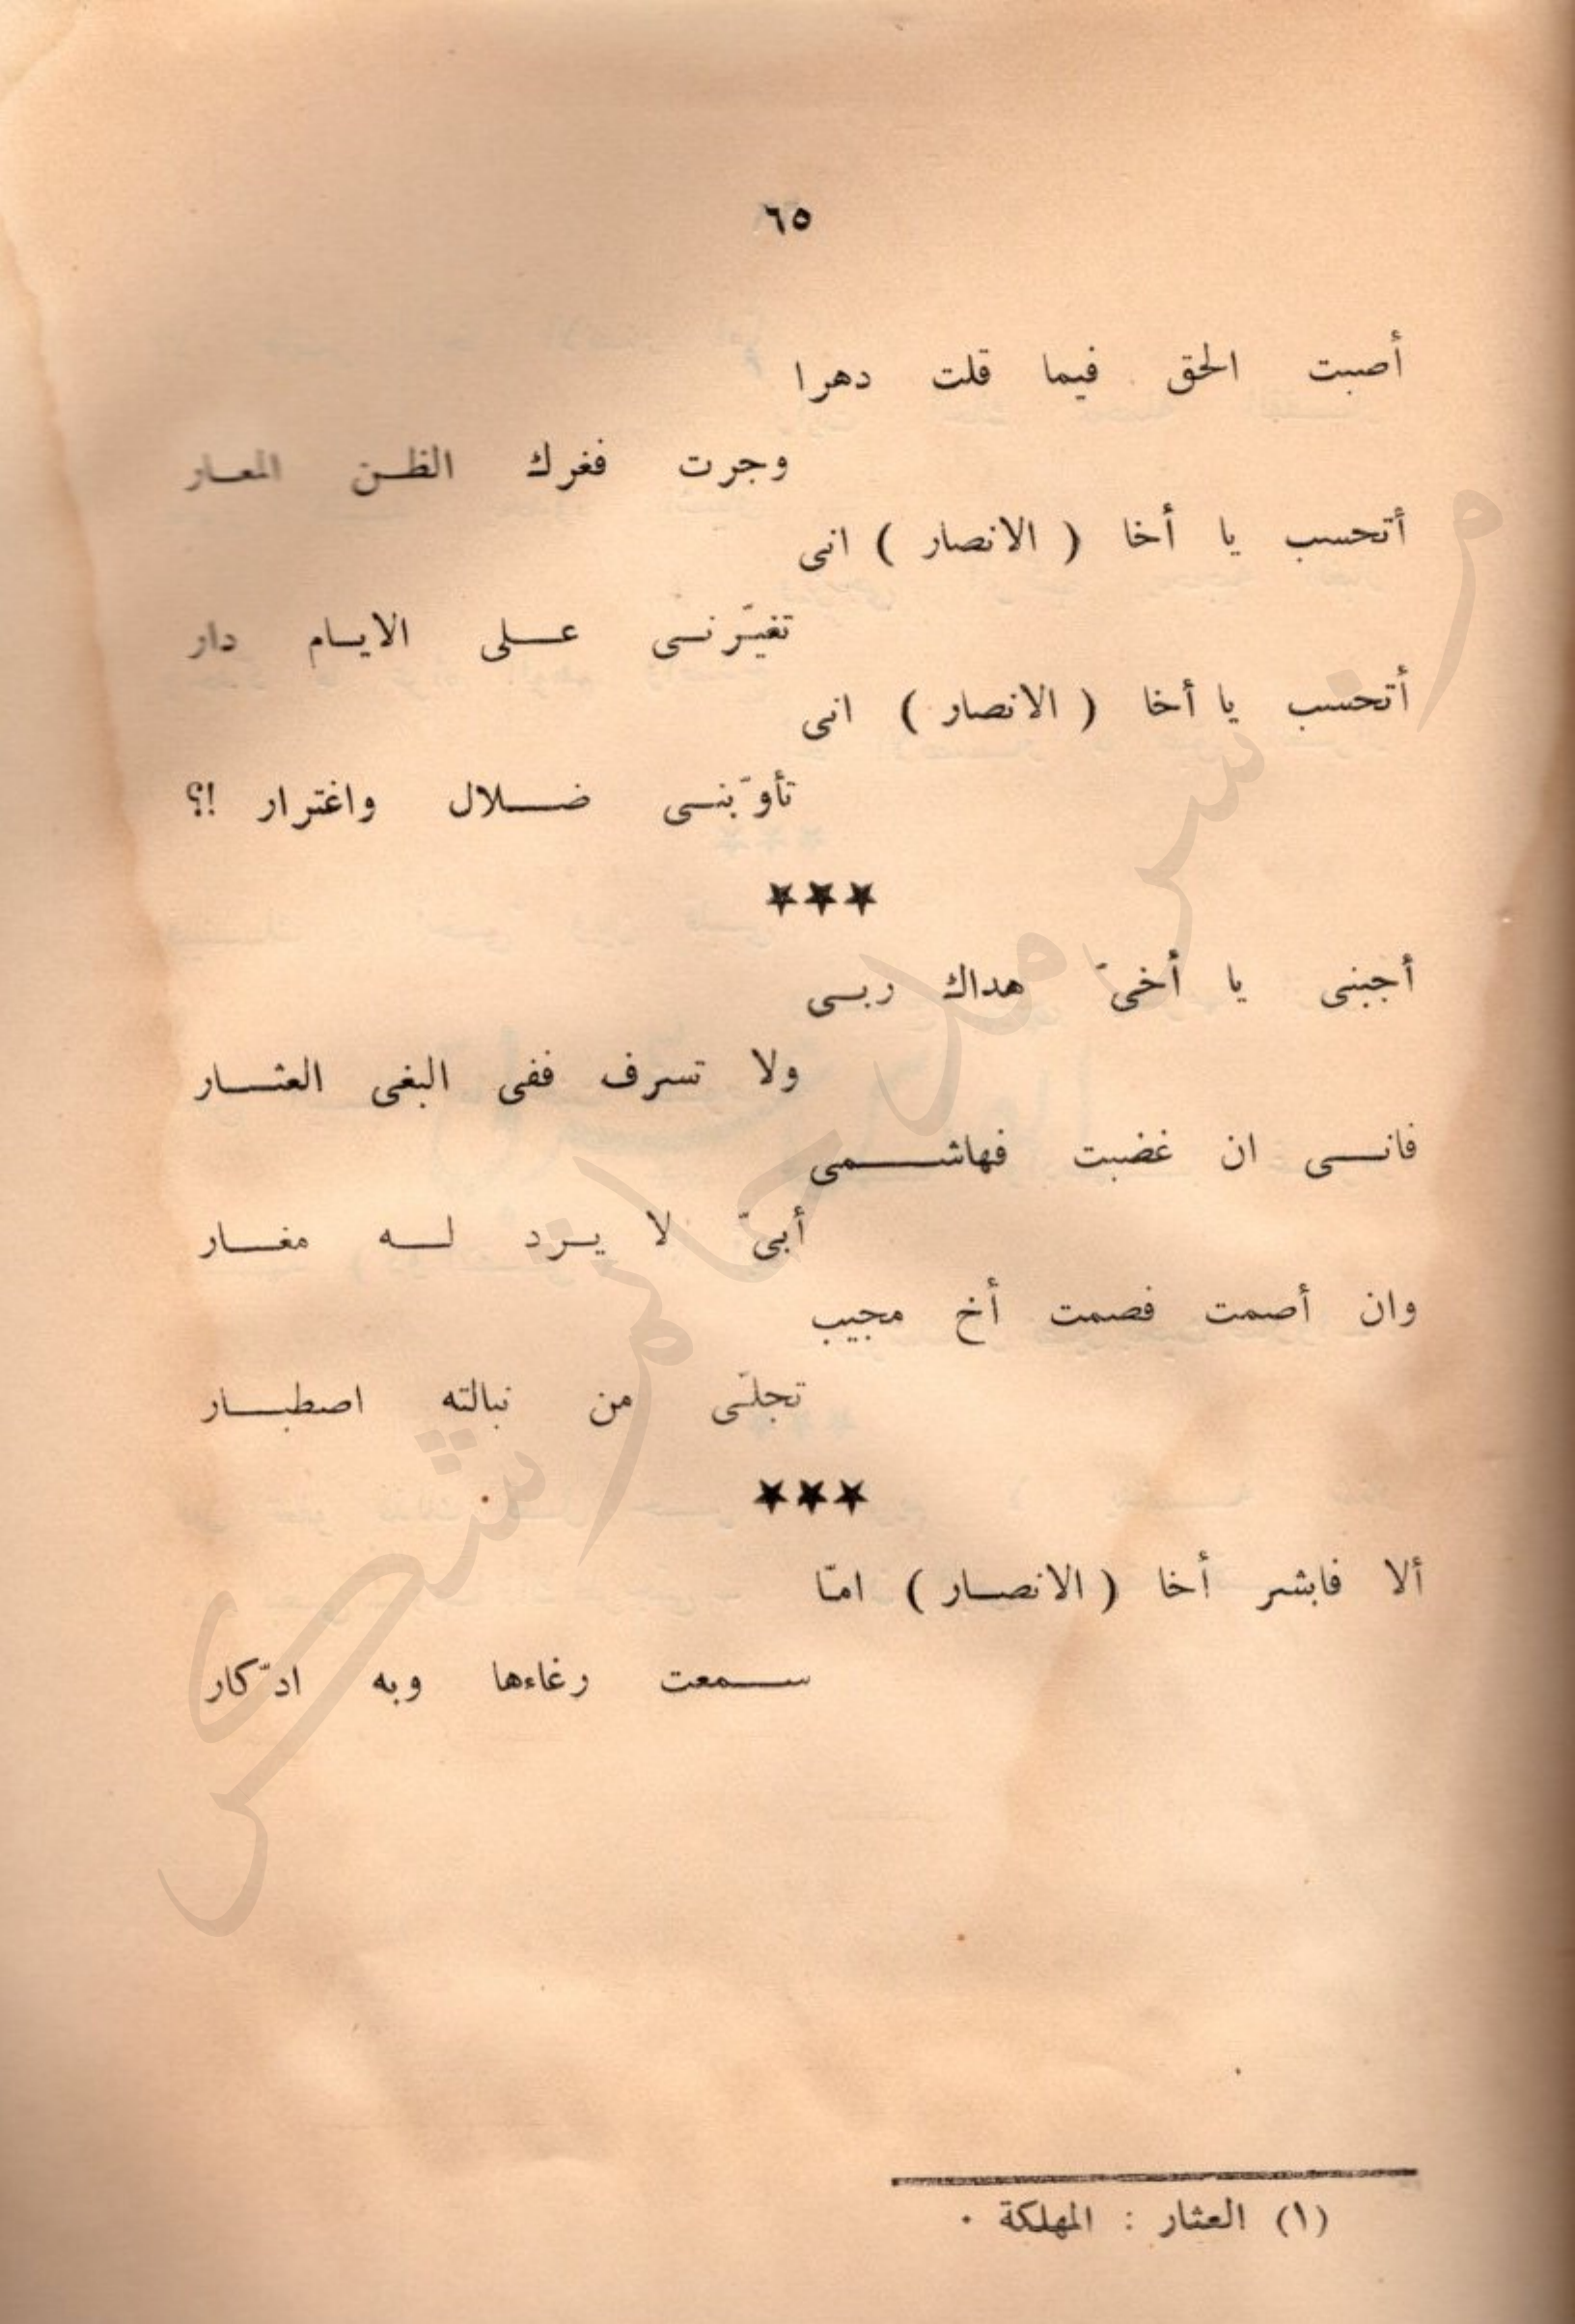 ٦٥
أصبت الحق فيما قلت دهرا
وجرت فغرك الظن المعار
أتحسب يا أخا ( الانصار ) انى
تغيّرنى على الايام دار
أتحسب يا أخا ( الانصار ) انى
تأوّبنى ضلال واغترار !؟
★★★
أجبنى يا أخىّ هداك ربى
ولا تسرف ففى البغى العثار
فانى ان غضبت فهاشمى
أبىّ لا يرد له مغار
وان أصمت فصمت أخ مجيب
تجلّى من نبالته اصطبار
★★★
ألا فابشر أخا ( الانصار ) امّا
سمعت رغاءها وبه ادّكار
(١) العثار : المهلكة .